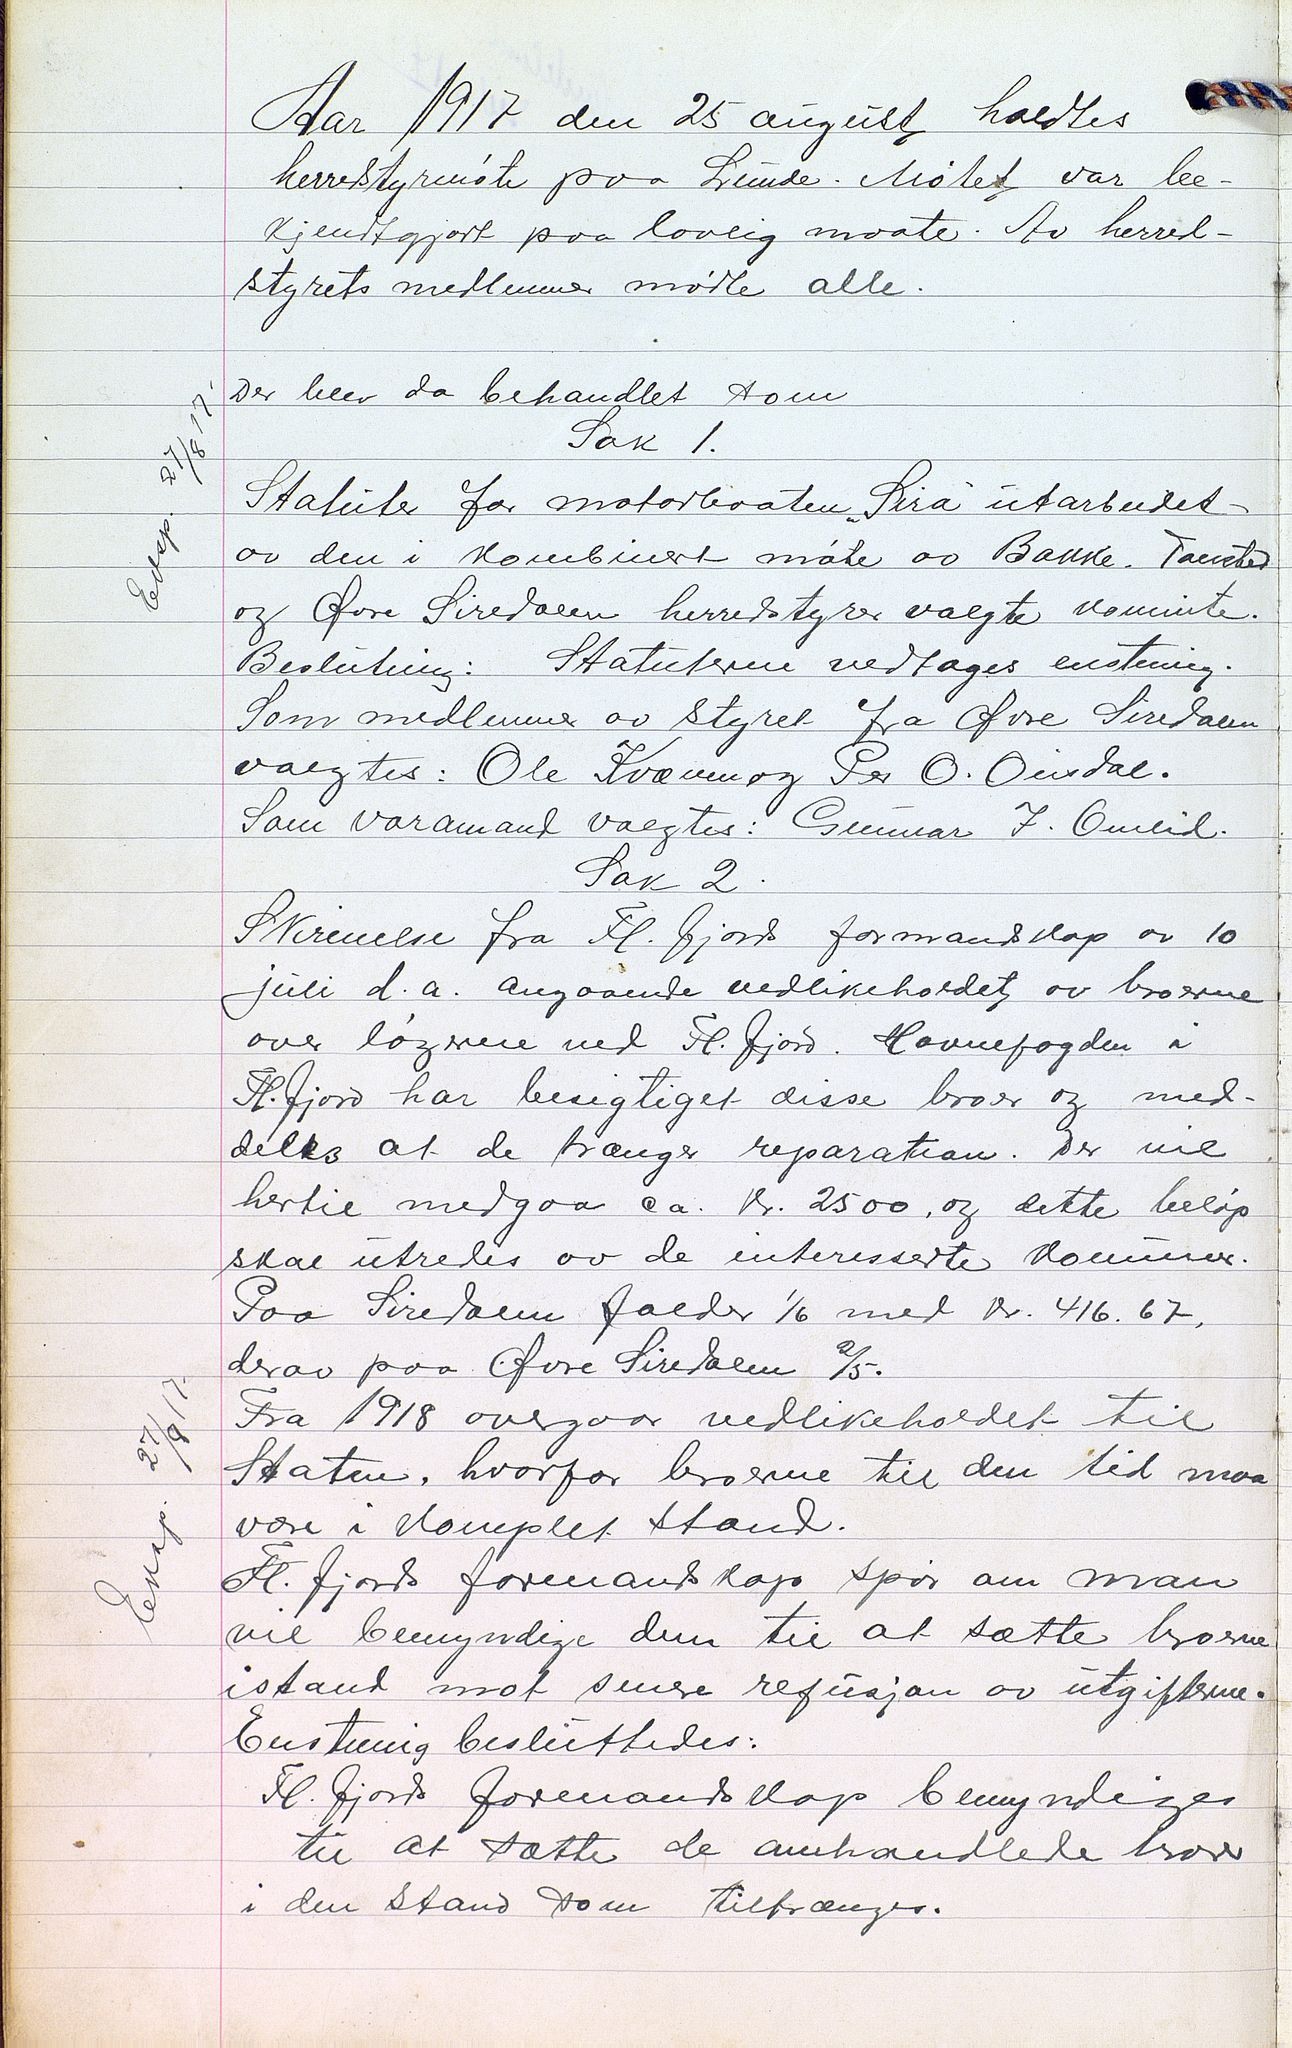 Aar 1917 den 25 august holdtes
herredstyrmøte paa Lunde. Møtet var be-
kjendtgjort paa lovlig maate. Av herred-
styrets medlemmer møtte alle.
Der blev da behandlet som
Sak 1.
Eksp. 27/8 17.
Statuter for motorbaaten „Sira" utarbeidet
av den i kombinert møte av Bakke, Tonstad
og Øvre Siredalen herredstyrer valgte komite.
Beslutning: Statuterne vedtages enstemig.
Som medlemmer av styret fra Øvre Siredalen
valgtes: Ole Kvæven og Per O. Ousdal.
Som varamand valgtes: Gunnar T. Omlid.
Sak 2.
Skrivelse fra Fl. fjords formandskap av 10
juli d. a. angaaende vedlikeholdet av broerne
over løgerne ved Fl. fjord. Havnefogden i
Fl. fjord har besigtiget disse broer og med-
deles at de trænger reparation. Der vil
hertil medgaa ca. kr. 2500, og dette beløp
skal utredes av de interesserte kommuner.
Paa Siredalen falder 1/6 med kr. 416.67,
derav paa Øvre Siredalen 2/5.
Eksp. 27/8 17.
Fra 1918 overgaar vedlikeholdet til
Staten, hvorfor broerne til den tid maa
være i komplet stand.
Fl. fjords formandskap spør om man
vil bemyndige dem til at sætte broerne
istand mot senere refusjon av utgifterne.
Enstemig besluttedes:
Fl. fjords formandskap bemyndiges
til at sætte de omhandlede broer
i den stand som tiltrænges.